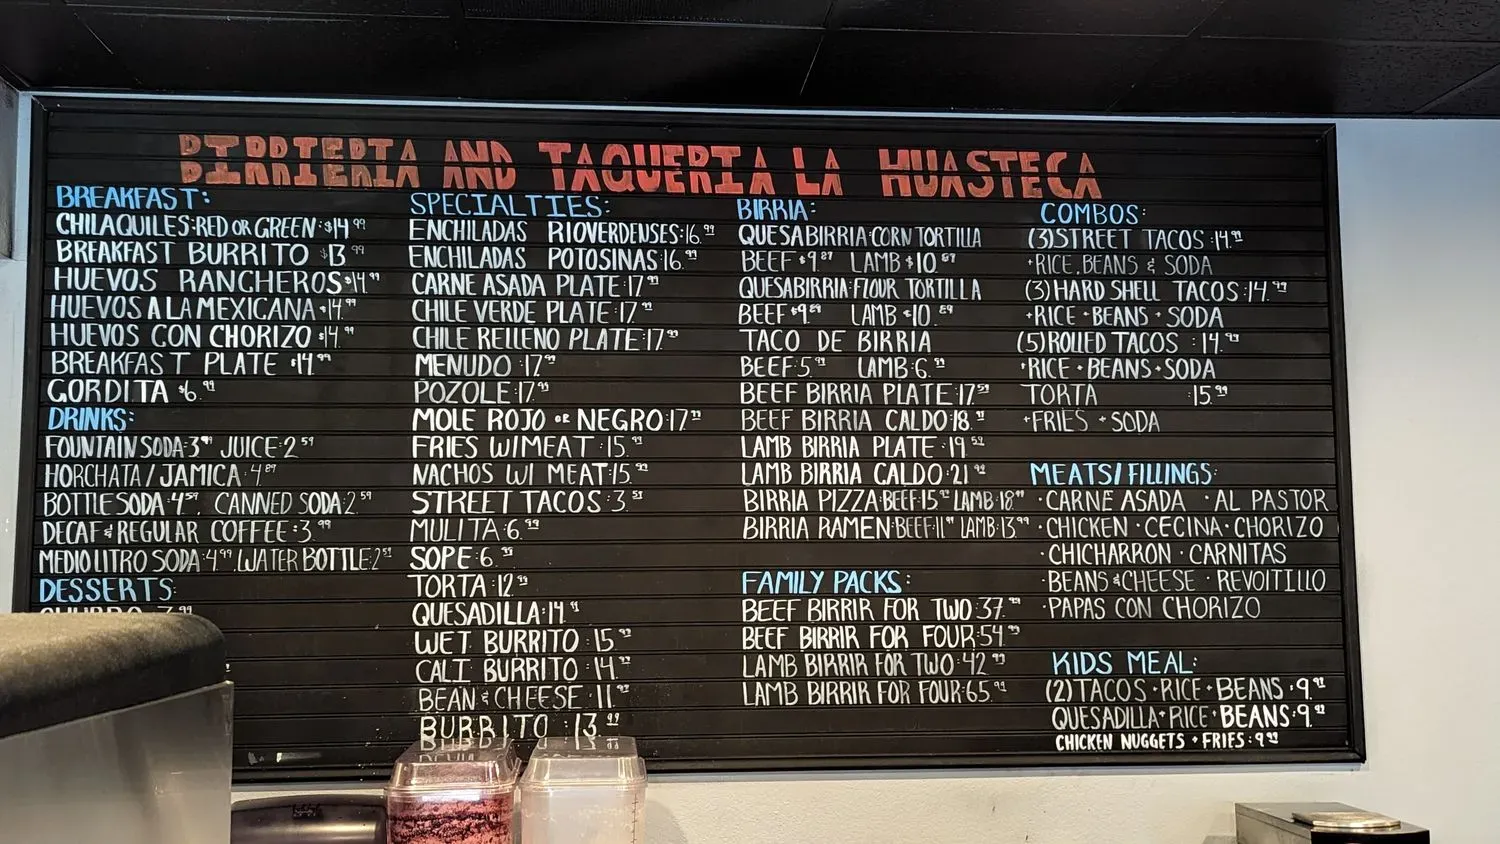 BIRRIERIA AND TAQUERIA LA HUASTECA
BREAKFAST:
CHILAQUILES:RED OR GREEN:$14.99
BREAKFAST BURRITO $13.99
HUEVOS RANCHEROS $14.99
HUEVOS A LA MEXICANA $14.99
HUEVOS CON CHORIZO $14.99
BREAKFAST PLATE $14.99
GORDITA $6.99
DRINKS:
FOUNTAIN SODA:3.99 JUICE:2.59
HORCHATA/JAMICA:4.89
BOTTLE SODA:4.59. CANNED SODA:2.59
DECAF & REGULAR COFFEE:3.99
MEDIO LITRO SODA:4.99.WATER BOTTLE:2.59
DESSERTS:
CHURRO 7.99
SPECIALTIES:
ENCHILADAS RIOVERDENSES:16.99
ENCHILADAS POTOSINAS:16.99
CARNE ASADA PLATE:17.99
CHILE VERDE PLATE:17.99
CHILE RELLENO PLATE:17.99
MENUDO:17.99
POZOLE:17.99
MOLE ROJO OR NEGRO:17.99
FRIES W/MEAT:15.99
NACHOS W/ MEAT:15.99
STREET TACOS:3.59
MULITA:6.99
SOPE:6.99
TORTA:12.99
QUESADILLA:14.99
WET BURRITO:15.99
CALI BURRITO:14.99
BEAN & CHEESE:11.99
BURRITO:13.99
BIRRIA:
QUESABIRRIA:CORN TORTILLA
BEEF $9.89 LAMB $10.89
QUESABIRRIA:FLOUR TORTILLA
BEEF $9.89 LAMB $10.89
TACO DE BIRRIA
BEEF:5.99 LAMB:6.99
BEEF BIRRIA PLATE:17.59
BEEF BIRRIA CALDO:18.99
LAMB BIRRIA PLATE:19.59
LAMB BIRRIA CALDO:21.99
BIRRIA PIZZA:BEEF:15.99 LAMB:18.99
BIRRIA RAMEN:BEEF:11.99 LAMB:13.99
FAMILY PACKS:
BEEF BIRRIR FOR TWO:37.99
BEEF BIRRIR FOR FOUR:54.99
LAMB BIRRIR FOR TWO:42.99
LAMB BIRRIR FOR FOUR:65.99
COMBOS:
(3)STREET TACOS:14.99
+RICE,BEANS & SODA
(3)HARD SHELL TACOS:14.99
+RICE+BEANS+SODA
(5)ROLLED TACOS:14.99
+RICE+BEANS+SODA
TORTA :15.99
+FRIES +SODA
MEATS/FILLINGS:
·CARNE ASADA ·AL PASTOR
·CHICKEN ·CECINA·CHORIZO
·CHICHARRON ·CARNITAS
·BEANS & CHEESE ·REVOITILLO
·PAPAS CON CHORIZO
KIDS MEAL:
(2)TACOS+RICE+BEANS:9.99
QUESADILLA+RICE+BEANS:9.99
CHICKEN NUGGETS + FRIES:9.99